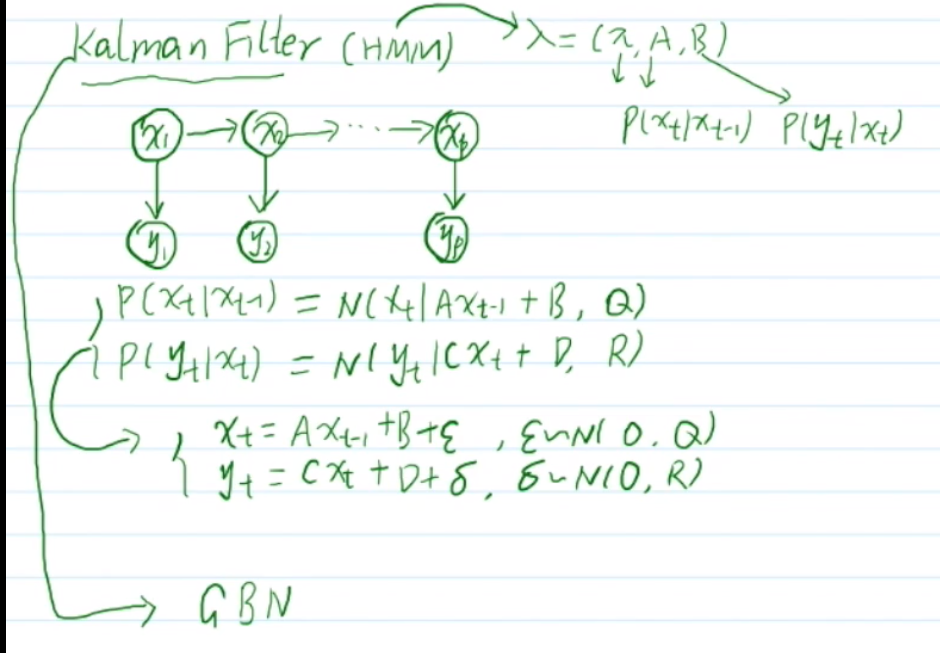 Kalman Filter (HMM) → λ = (π, A, B)
P(xₜ|xₜ₋₁) P(yₜ|xₜ)
x₁ → x₂ → ⋯ → xₚ
y₁ y₂ yₚ
P(xₜ|xₜ₋₁) = N(xₜ|Axₜ₋₁ + B, Q)
P(yₜ|xₜ) = N(yₜ|Cxₜ + D, R)
xₜ = Axₜ₋₁ + B + ε , ε ~ N(0, Q)
yₜ = Cxₜ + D + δ, δ ~ N(0, R)
→ GBN